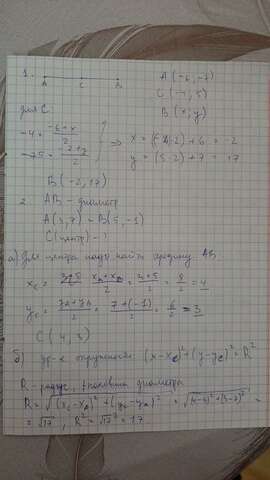 1.
A C B
A(-6;-7)
C(-4;5)
B(x;y)
для C
-4 = (-6+x)/2
5 = (-7+y)/2
⇒ x = (-4·2)+6 = -2
y = (5·2)+7 = 17
B(-2,17)
2. AB - диаметр
A(3;7) B(5,-1)
C(центр) - ?
а) Для центра надо найти середину AB
x_c = (xₐ+x_b)/2 = (3+5)/2 = 8/2 = 4
y_c = (yₐ+y_b)/2 = (7+(-1))/2 = 6/2 = 3
C(4,3)
б) ур-е окружности (x-x_c)²+(y-y_c)²=R²
R-радиус, половина диаметра
R = √((x_c-xₐ)²+(y_c-yₐ)²) = √((4-3)²+(3-7)²) =
= √17, R²=√17²=17